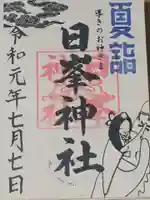 夏詣
導きのお神さま
日峯神社
令和元年七月七日